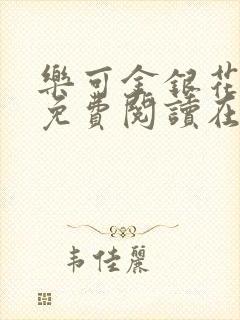 樂可金銀花
免費閱讀在
韋佳麗